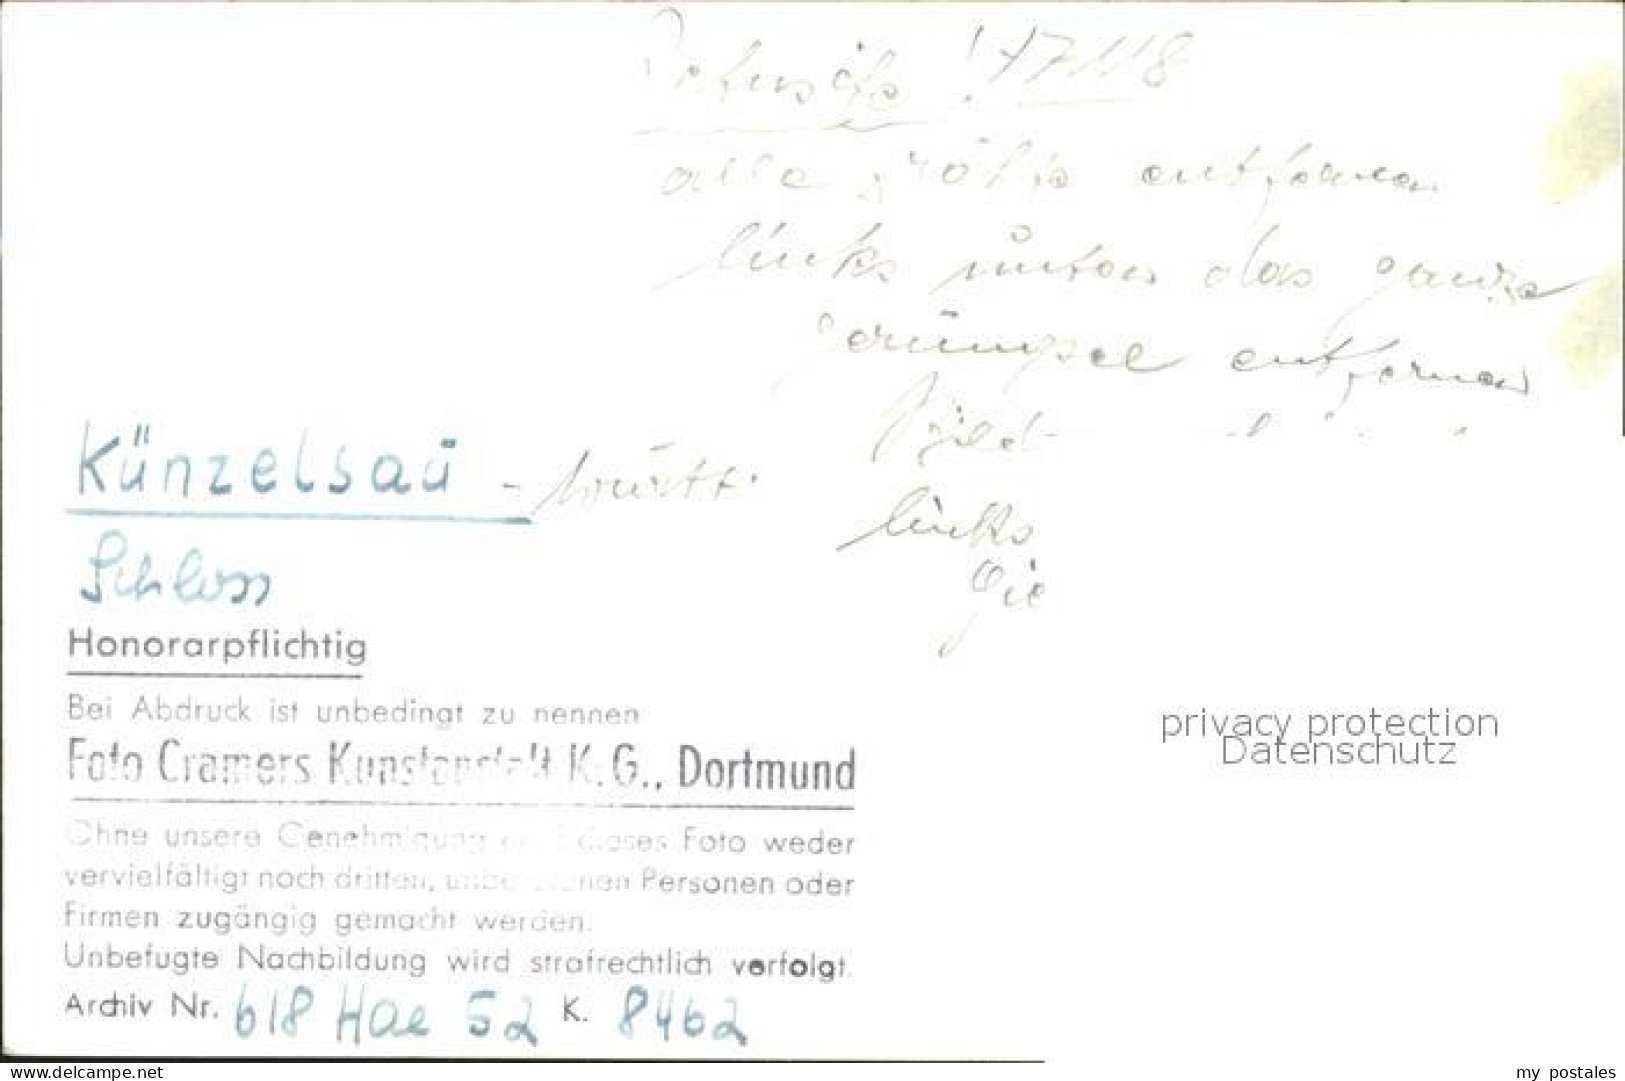 17118
alle entfernen
links unten das ganze
gerümpel entfernen
links
Künzelsaü - württ.
Schloss
Honorarpflichtig
Bei Abdruck ist unbedingt zu nennen
Foto Cramers Kunstanstalt K.G., Dortmund
Ohne unsere Genehmigung dieses Foto weder
vervielfältigt noch dritten, Personen oder
Firmen zugängig gemacht werden.
Unbefugte Nachbildung wird strafrechtlich verfolgt.
Archiv Nr. 618 Hae 52 K. 8462
privacy protection
Datenschutz
delcampe.net
my postales